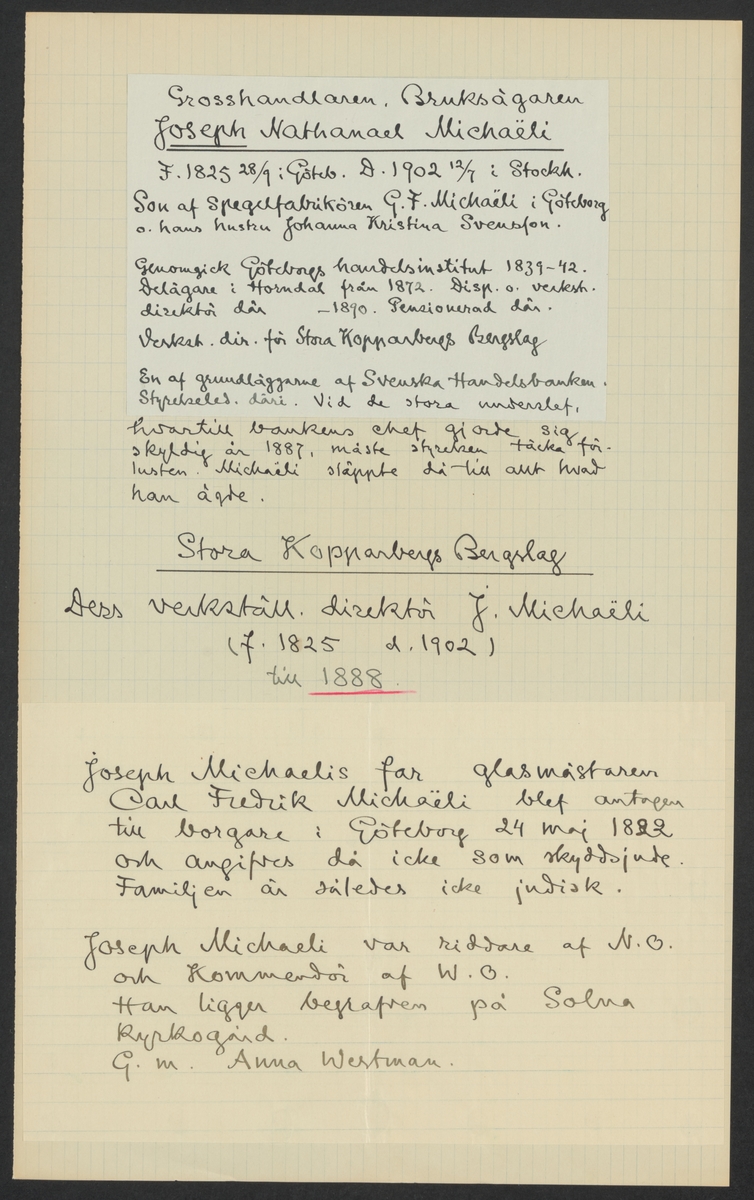 Grosshandlaren, Bruksägaren
Joseph Nathanael Michaëli
F. 1825 28/9 i Göteb. D. 1902 12/7 i Stockh.
Son af Spegelfabrikören G. F. Michaëli i Göteborg
o. hans hustru Johanna Kristina Svensson.
Genomgick Göteborgs handelsinstitut 1839-42.
Delägare i Horndal från 1872. Disp. o. verkst.
direktör där -1890. Pensionerad där.
Verkst. dir. för Stora Kopparbergs Bergslag
En af grundläggarne af Svenska Handelsbanken.
Styrelseled. däri. Vid de stora underslef,
hvartill bankens chef gjorde sig
skyldig år 1887, måste styrelsen täcka för-
lusten. Michaëli släppte då till allt hvad
han ägde.
Stora Kopparbergs Bergslag
Dess verkställ. direktör J. Michaëli
(f. 1825 d. 1902)
till 1888.
Joseph Michaelis far glasmästaren
Carl Fredrik Michaëli blef antagen
till borgare i Göteborg 24 maj 1822
och angifves då icke som skyddsjude.
Familjen är således icke judisk.
Joseph Michaeli var riddare af N.O.
och Kommendör af W.O.
Han ligger begrafven på Solna
Kyrkogård.
G. m. Anna Westman.